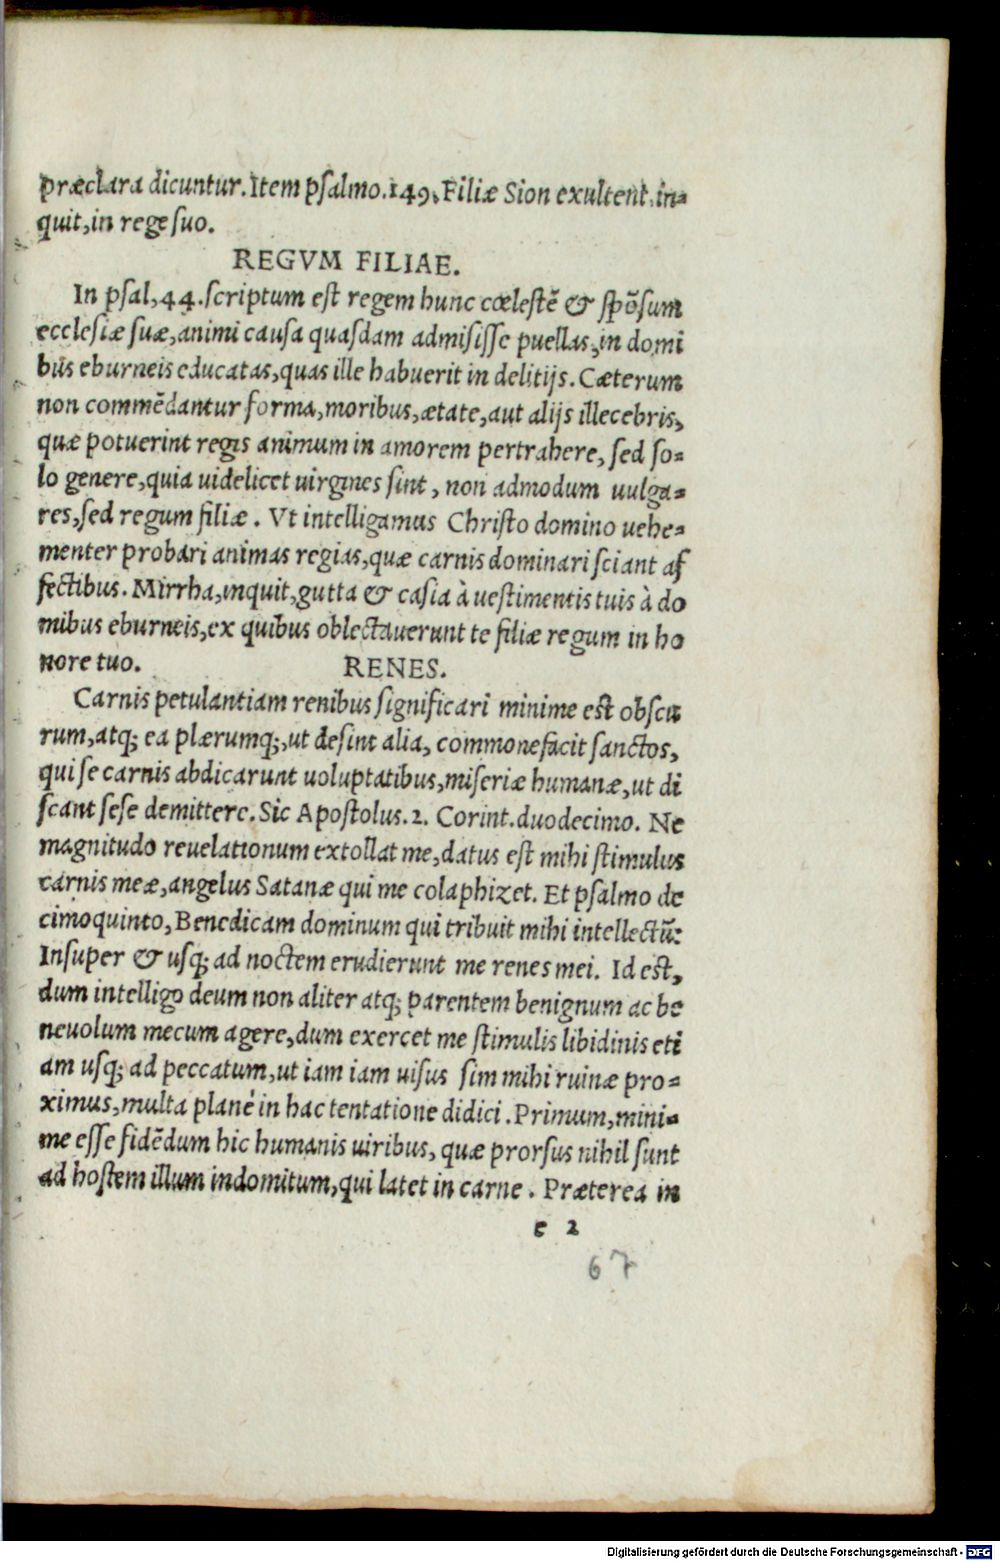 præclara dicuntur. Item psalmo. 149, Filiæ Sion exultent, in-
quit, in rege suo.
REGVM FILIAE.
In psal, 44. scriptum est regem hunc cœlestē & spōsum
ecclesiæ suæ, animi causa quasdam admisisse puellas, in domi
bus eburneis educatas, quas ille habuerit in delitijs. Cæterum
non commēdantur forma, moribus, ætate, aut alijs illecebris,
quæ potuerint regis animum in amorem pertrahere, sed so-
lo genere, quia uidelicet uirgines sint, non admodum uulga-
res, sed regum filiæ. Vt intelligamus Christo domino uehe-
menter probari animas regias, quæ carnis dominari sciant af
fectibus. Mirrha, inquit, gutta & casia à uestimentis tuis à do
mibus eburneis, ex quibus oblectauerunt te filiæ regum in ho
nore tuo. RENES.
Carnis petulantiam renibus significari minime est obscu
rum, atq; ea plærumq;, ut desint alia, commonefacit sanctos,
qui se carnis abdicarunt uoluptatibus, miseriæ humanæ, ut di
scant sese demittere. Sic Apostolus. 2. Corint. duodecimo. Ne
magnitudo reuelationum extollat me, datus est mihi stimulus
carnis meæ, angelus Satanæ qui me colaphizet. Et psalmo de
cimoquinto, Benedicam dominum qui tribuit mihi intellectū:
Insuper & usq; ad noctem erudierunt me renes mei. Id est,
dum intelligo deum non aliter atq; parentem benignum ac be
neuolum mecum agere, dum exercet me stimulis libidinis eti
am usq; ad peccatum, ut iam iam uisus sim mihi ruinæ pro-
ximus, multa planè in hac tentatione didici. Primum, mini-
me esse fidēdum hic humanis uiribus, quæ prorsus nihil sunt
ad hostem illum indomitum, qui latet in carne. Præterea in
e 2
67
Digitalisierung gefördert durch die Deutsche Forschungsgemeinschaft - DFG